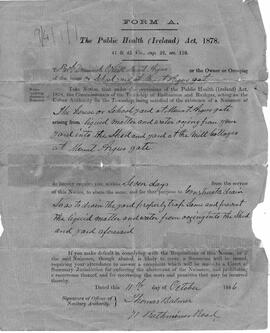 9/4/1/1
FORM A.
The Public Health (Ireland) Act, 1878.
41 & 42 Vic., cap. 52, sec. 110.
To Mount Argus or the Owner or Occupier
of the School at Mount Argus gate
Take Notice, that under the provisions of the Public Health (Ireland)
Act, 1878, the Commissioners of the Township of Rathmines and Rathgar, acting as the
Urban Authority for the Township, being satisfied of the existence of a Nuisance at
The house or School yard at Mount Argus gate
arising from liquid matter and water oozing from your
yard into the Shed and yard at the Mill Cottages
at Mount Argus gate
do hereby require you, within Seven days from the service
of this Notice, to abate the same, and for that purpose to Construct a drain
So as to drain the yard properly trap Same and prevent
the liquid matter and water from oozing into the Shed
and yard aforesaid
If you make default in complying with the Requisitions of this Notice, or if
the said Nuisance, though abated, is likely to recur, a Summons will be issued,
requiring your attendance to answer a complaint which will be made to a Court of
Summary Jurisdiction for enforcing the abatement of the Nuisance, and prohibiting
a recurrence thereof, and for recovering the costs and penalties that may be incurred
thereby.
Dated this 11th day of October 1886
Signature of Officer of
Sanitary Authority,
Thomas
71 Rathmines Road